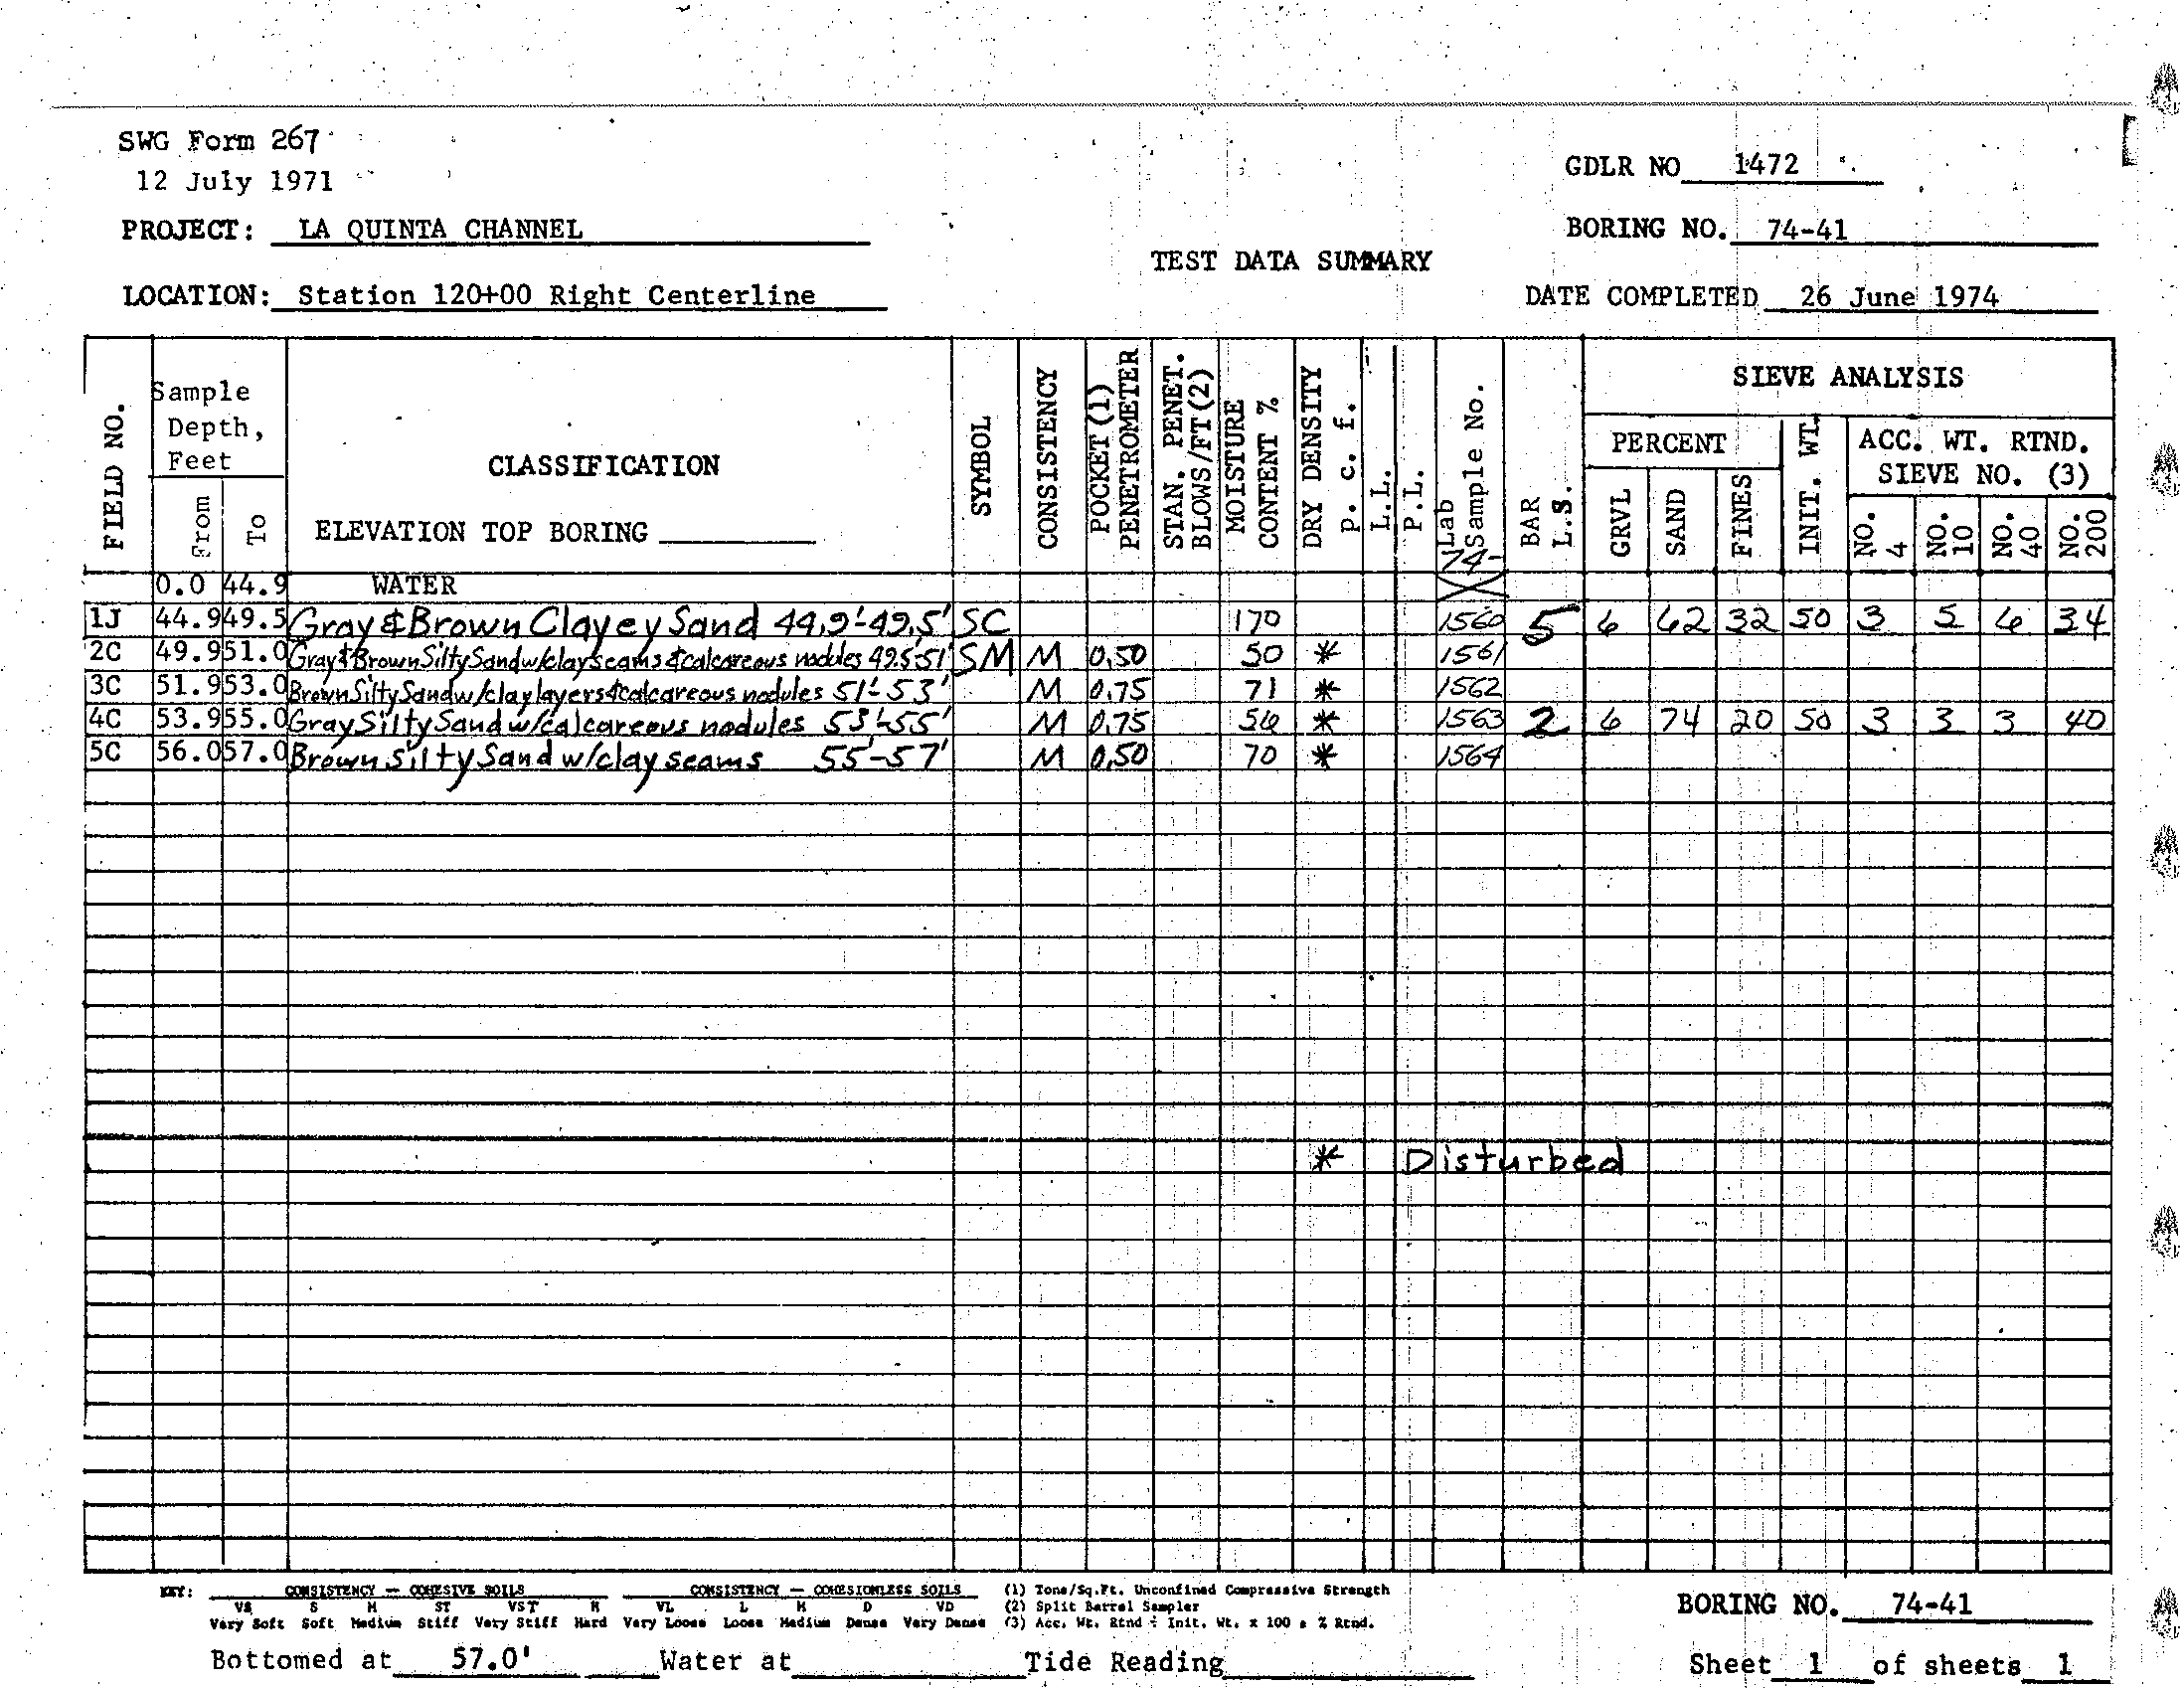 SWG Form 267
12 July 1971
GDLR NO 1472
PROJECT: LA QUINTA CHANNEL
BORING NO. 74-41
TEST DATA SUMMARY
LOCATION: Station 120+00 Right Centerline
DATE COMPLETED 26 June 1974
FIELD NO.
Sample Depth, Feet
From
To
CLASSIFICATION
ELEVATION TOP BORING
SYMBOL
CONSISTENCY
POCKET (1) PENETROMETER
STAN. PENET. BLOWS/FT (2)
MOISTURE CONTENT %
DRY DENSITY p. c. f.
L.L.
P.L.
Lab Sample No.
74-
BAR L.S.
SIEVE ANALYSIS
PERCENT
GRVL
SAND
FINES
INIT. WT.
ACC. WT. RTND.
SIEVE NO. (3)
NO. 4
NO. 10
NO. 40
NO. 200
0.0 44.9 WATER
1J 44.9 49.5 Gray & Brown Clayey Sand 44.9'-49.5' SC 170 1560 5 6 62 32 50 3 5 6 34
2C 49.9 51.0 Gray & Brown Silty Sand w/clay seams & calcareous nodules 49.5'-51' SM M 0.50 50 * 1561
3C 51.9 53.0 Brown Silty Sand w/clay layers & calcareous nodules 51'-53' M 0.75 71 * 1562
4C 53.9 55.0 Gray Silty Sand w/calcareous nodules 53'-55' M 0.75 56 * 1563 2 6 74 20 50 3 3 3 40
5C 56.0 57.0 Brown Silty Sand w/clay seams 55'-57' M 0.50 70 * 1564
* Disturbed
KEY: CONSISTENCY — COHESIVE SOILS CONSISTENCY — COHESIONLESS SOILS (1) Tons/Sq.Ft. Unconfined Compressive Strength
VS S M ST VST H VL L M D VD (2) Split Barrel Sampler
Very Soft Soft Medium Stiff Very Stiff Hard Very Loose Loose Medium Dense Very Dense (3) Acc. Wt. Rtnd ÷ Init. Wt. x 100 = % Rtnd.
BORING NO. 74-41
Bottomed at 57.0' Water at Tide Reading
Sheet 1 of sheets 1